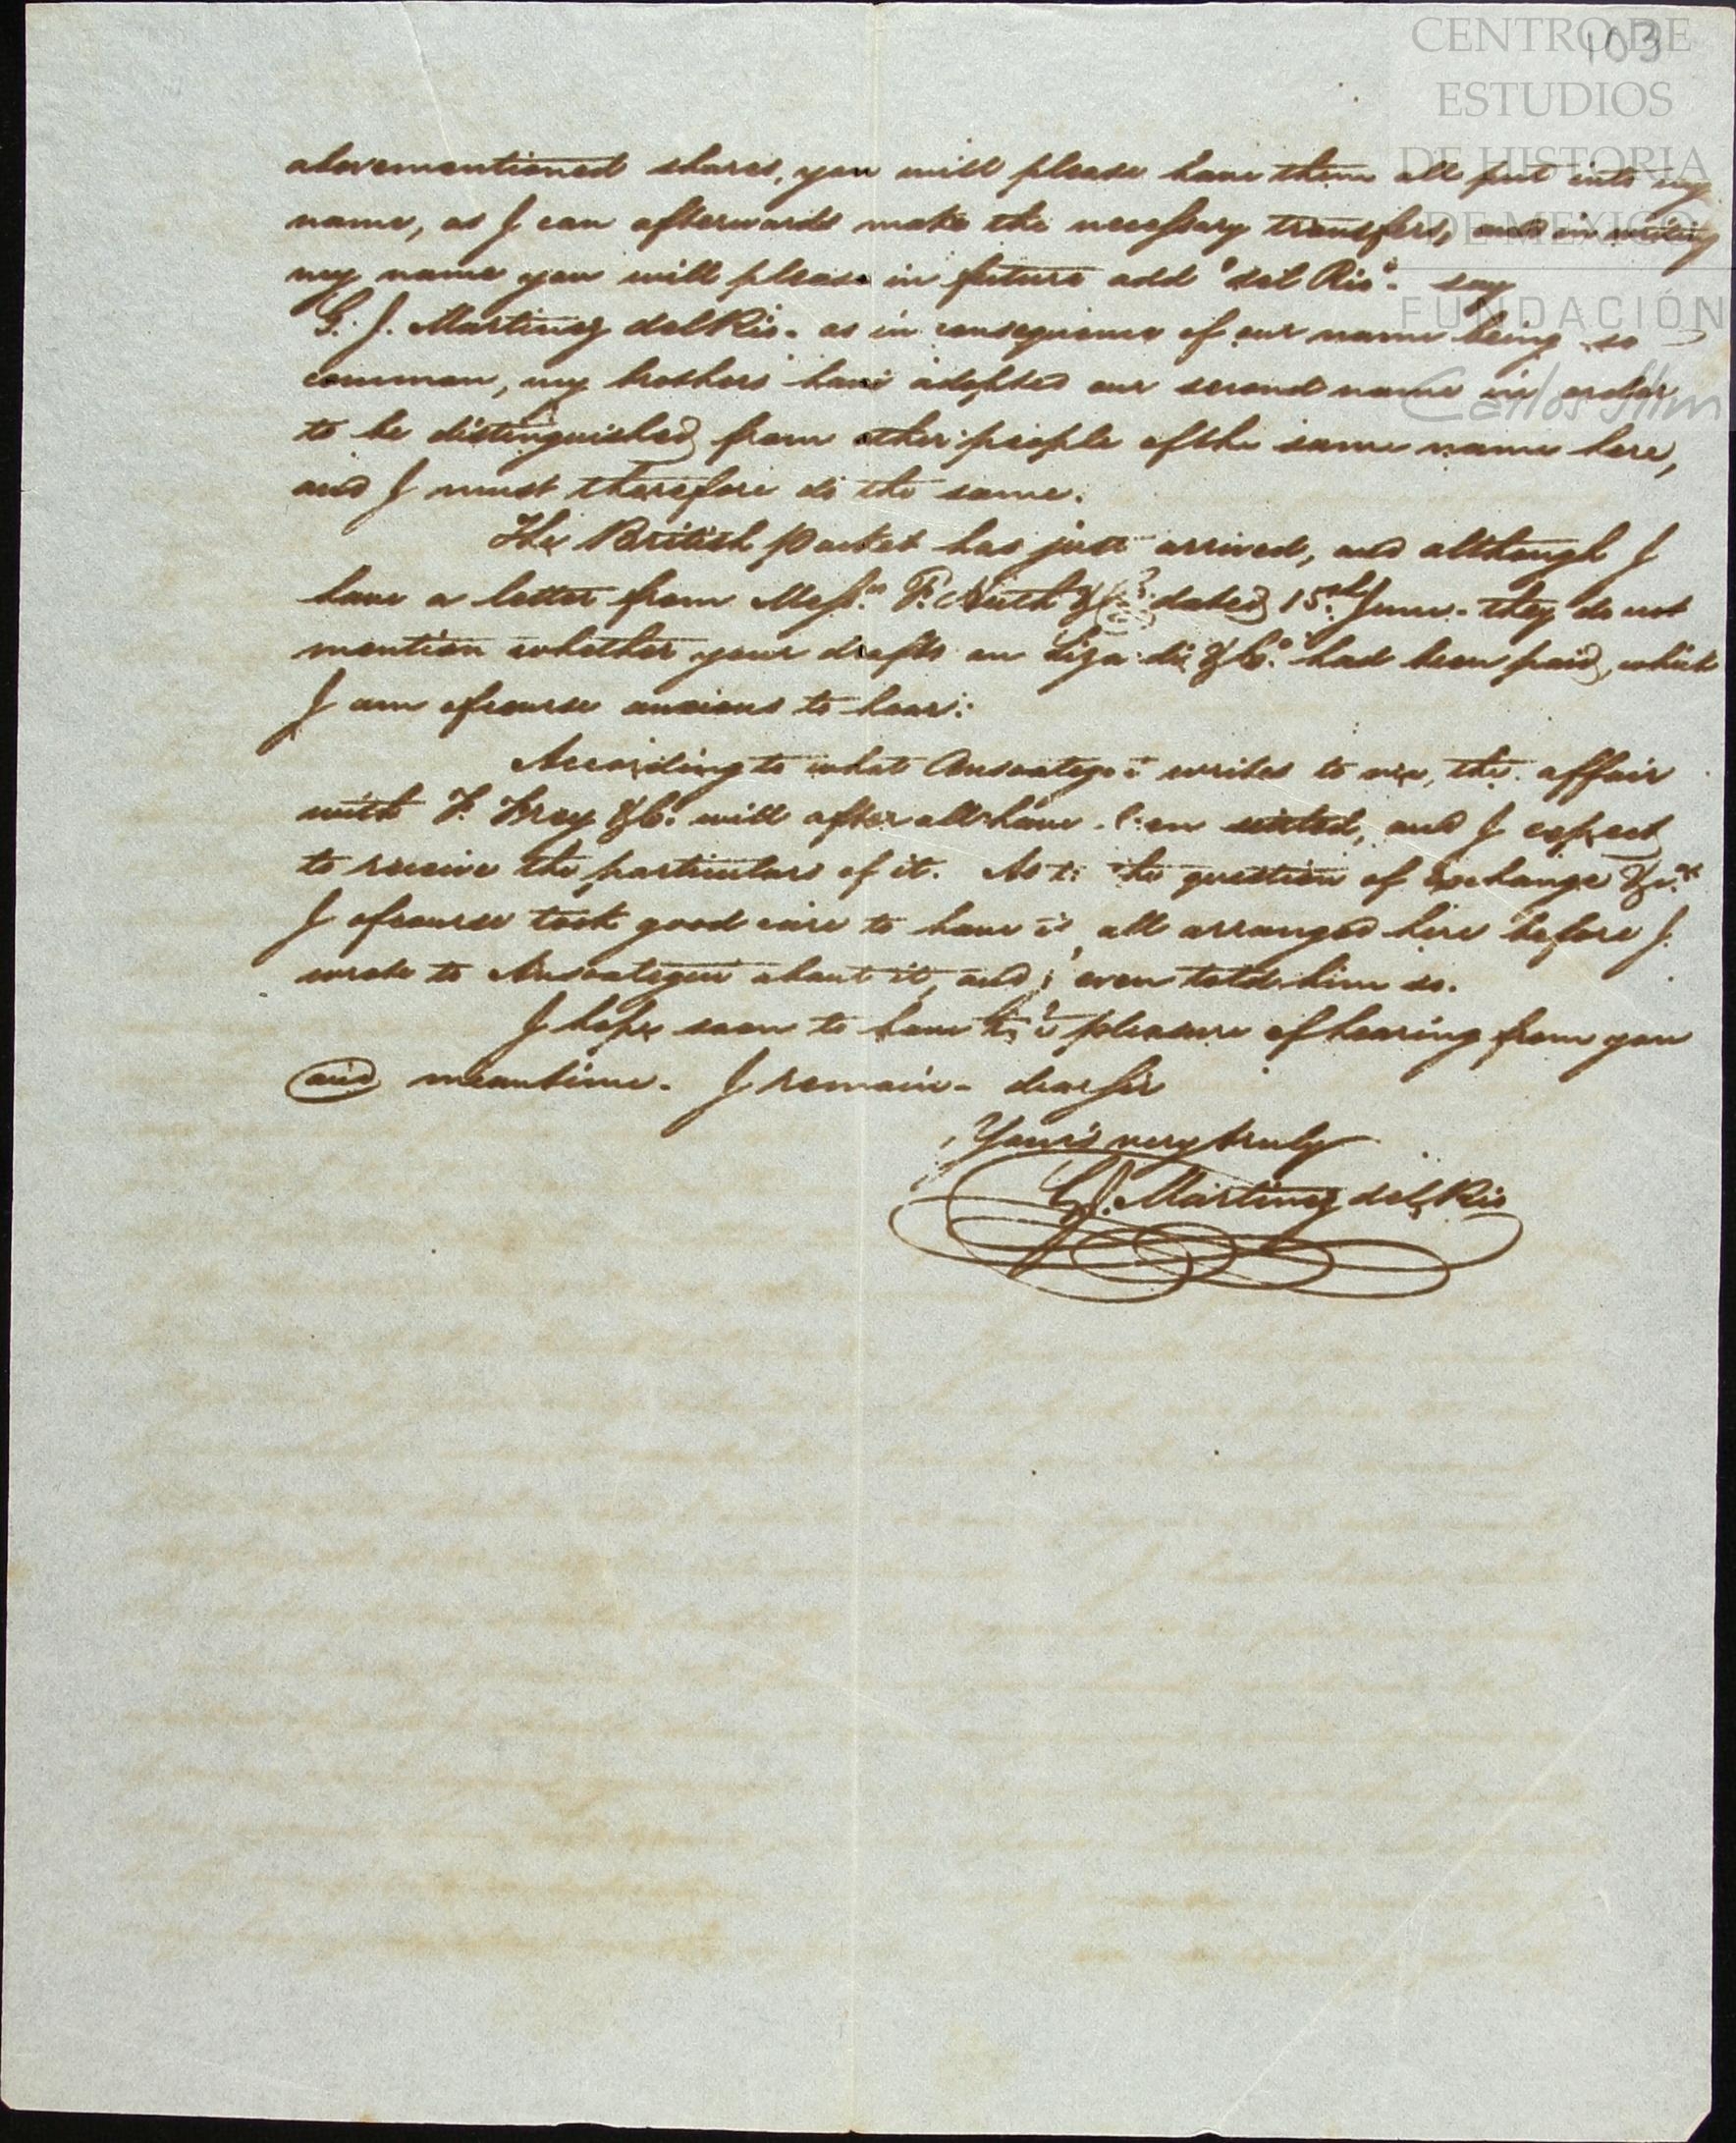 103
CENTRO DE
ESTUDIOS
DE HISTORIA
DE MEXICO
FUNDACIÓN
Carlos Slim
abovementioned shares, you will please have them all put into my
name, as I can afterwards make the necessary transfers, and in writing
my name you will please in future add "del Rio". say
G. J. Martinez del Rio - as in consequence of our name being so
common, my brothers have adopted our second name in order
to be distinguished from other people of the same name here,
and I must therefore do the same.
The British Packet has just arrived, and although I
have a letter from Mess.rs F. Huth & Co. dated 15th June - they do not
mention whether your drafts on & Co. had been paid, which
I am of course anxious to hear.
According to what Ansoategui writes to me, the affair
with F. & Co. will after all have been settled, and I expect
to receive the particulars of it. As to the question of Exchange &c.a
I of course took good care to have it all arranged here before I
wrote to Ansoategui about it, and I even told him so.
I hope soon to have the pleasure of hearing from you
and meantime - I remain - dear Sir
Yours very truly
G. J. Martinez del Rio